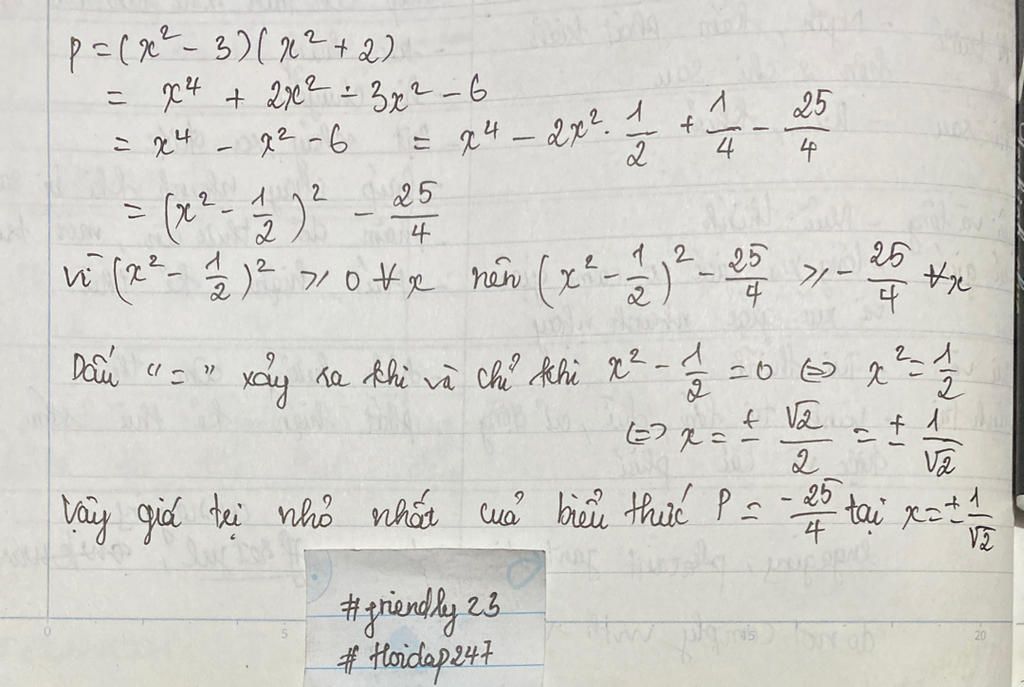 P = (x² - 3)(x² + 2)
= x⁴ + 2x² - 3x² - 6
= x⁴ - x² - 6 = x⁴ - 2x² · 1/2 + 1/4 - 25/4
= (x² - 1/2)² - 25/4
Vì (x² - 1/2)² ≥ 0 ∀x nên (x² - 1/2)² - 25/4 ≥ - 25/4 ∀x
Dấu "=" xảy ra khi và chỉ khi x² - 1/2 = 0 ⇔ x² = 1/2
⇔ x = ± √2/2 = ± 1/√2
Vậy giá trị nhỏ nhất của biểu thức P = -25/4 tại x = ± 1/√2
#friendly23
#Hoidap247
0 5 20